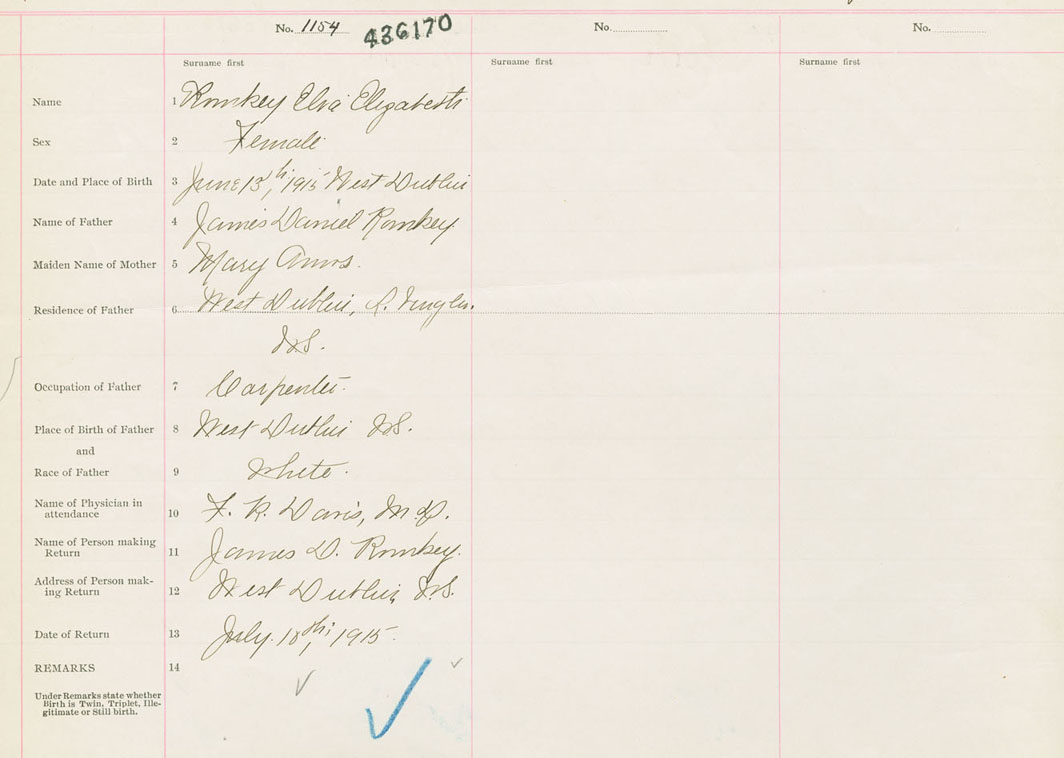 No. 1154
436170
No.
No.
Surname first
Surname first
Surname first
Name 1 Romkey Elva Elizabeth
Sex 2 Female
Date and Place of Birth 3 June 13th, 1915 West Dublin
Name of Father 4 James Daniel Romkey
Maiden Name of Mother 5 Mary
Residence of Father 6 West Dublin,
N.S.
Occupation of Father 7 Carpenter.
Place of Birth of Father 8 West Dublin N.S.
and
Race of Father 9 White.
Name of Physician in
attendance 10 F. R. Davis, M.D.
Name of Person making
Return 11 James D. Romkey.
Address of Person mak-
ing Return 12 West Dublin, N.S.
Date of Return 13 July. 18th, 1915.
REMARKS 14
Under Remarks state whether
Birth is Twin, Triplet, Ille-
gitimate or Still birth.